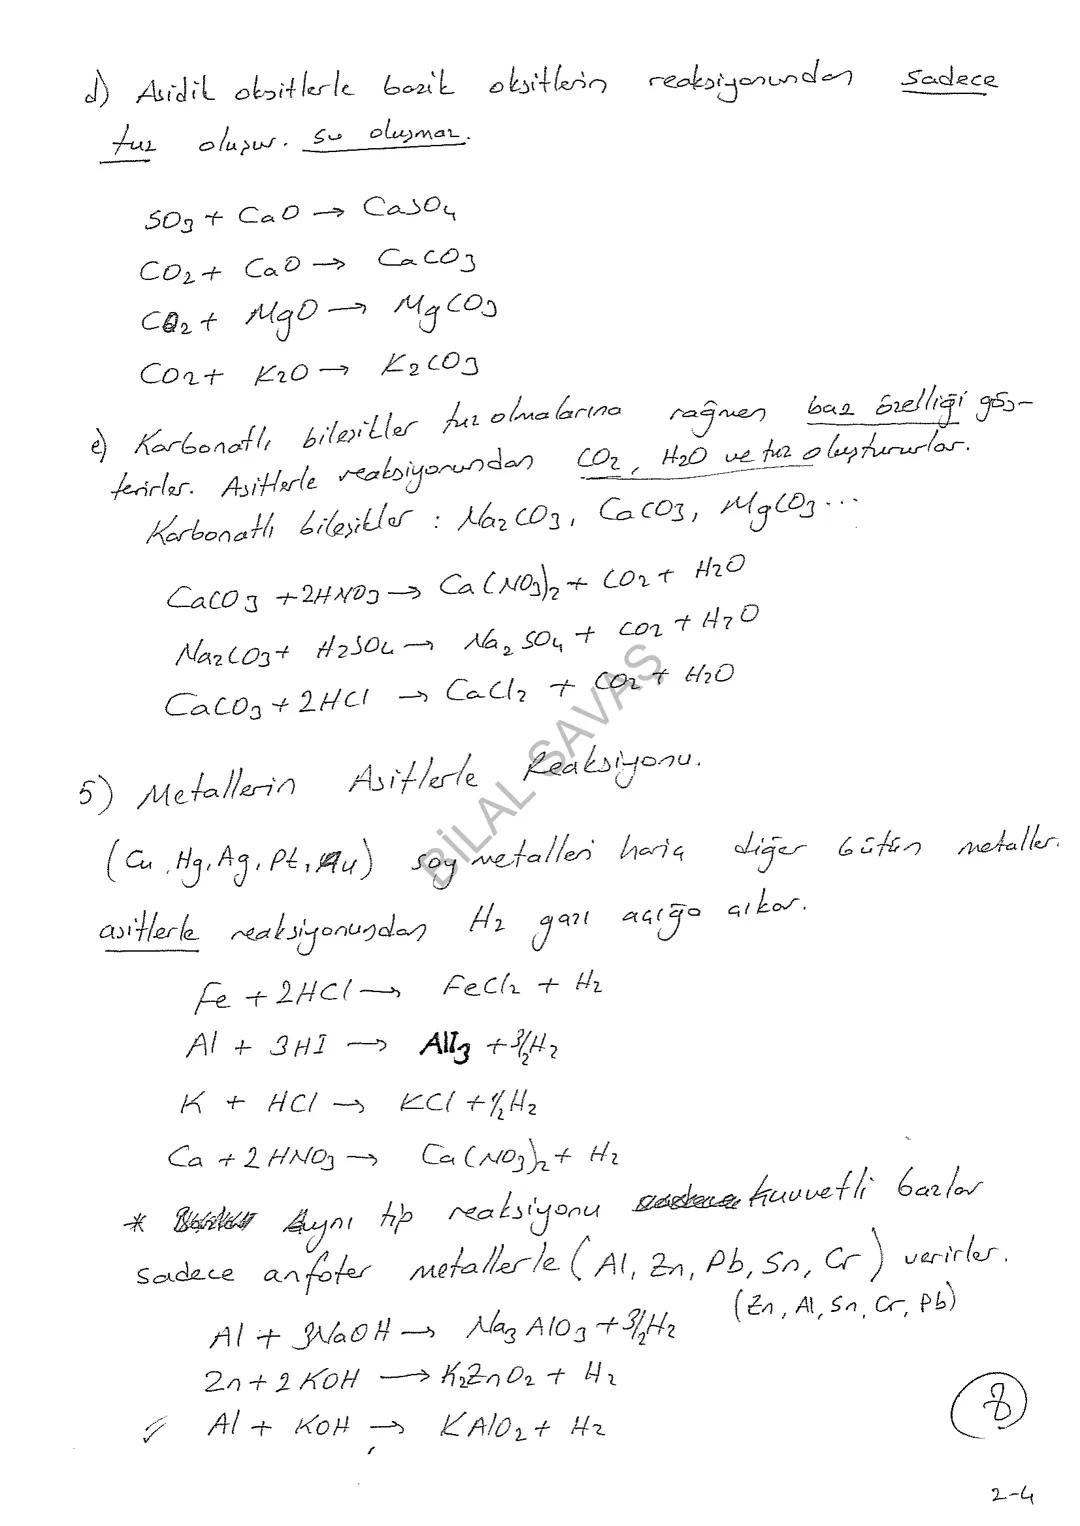 d) Asidik oksitlerle bazik oksitlerin reaksiyonundan sadece
tuz oluşur. su oluşmaz.
SO3 + CaO → CaSO4
CO2 + CaO → CaCO3
CO2 + MgO → MgCO3
CO2 + K2O → K2CO3
e) Karbonatlı bileşikler tuz olmalarına rağmen baz özelliği gös-
terirler. Asitlerle reaksiyonundan CO2, H2O ve tuz oluştururlar.
Karbonatlı bileşikler : Na2CO3, CaCO3, MgCO3...
CaCO3 + 2HNO3 → Ca(NO3)2 + CO2 + H2O
Na2CO3 + H2SO4 → Na2SO4 + CO2 + H2O
CaCO3 + 2HCl → CaCl2 + CO2 + H2O
BİLAL SAVAŞ
5) Metallerin Asitlerle Reaksiyonu.
(Cu, Hg, Ag, Pt, Au) soy metalleri hariç diğer bütün metaller.
asitlerle reaksiyonundan H2 gazı açığa çıkar.
Fe + 2HCl → FeCl2 + H2
Al + 3HI → AlI3 + 3/2H2
K + HCl → KCl + 1/2H2
Ca + 2HNO3 → Ca(NO3)2 + H2
* Aynı tip reaksiyonu kuvvetli bazlar
sadece anfoter metallerle (Al, Zn, Pb, Sn, Cr) verirler.
(Zn, Al, Sn, Cr, Pb)
Al + 3NaOH → Na3AlO3 + 3/2H2
Zn + 2KOH → K2ZnO2 + H2
Al + KOH → KAlO2 + H2
8
2-4